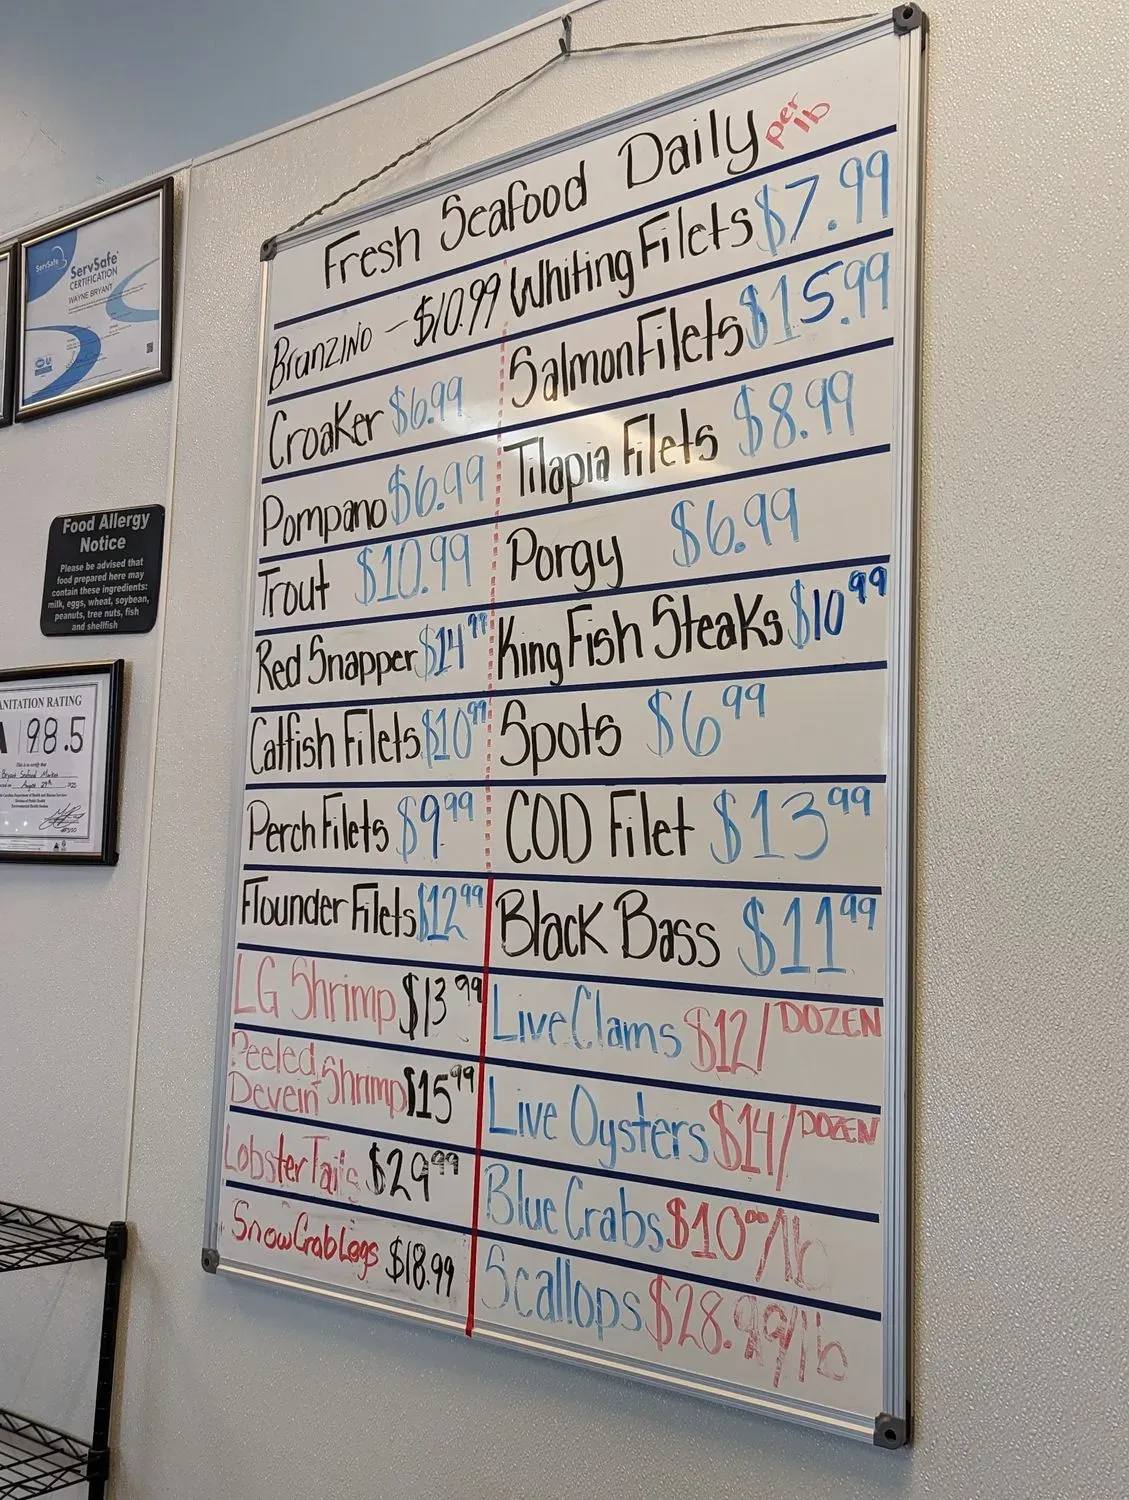 Fresh Seafood Daily per lb
Branzino - $10.99
Croaker $6.99
Pompano $6.99
Trout $10.99
Red Snapper $14.99
Catfish Filets $10.99
Perch Filets $9.99
Flounder Filets $12.99
LG Shrimp $13.99
Peeled, Devein Shrimp $15.99
Lobster Tails $29.99
Snow Crab Legs $18.99
Whiting Filets $7.99
Salmon Filets $15.99
Tilapia Filets $8.99
Porgy $6.99
King Fish Steaks $10.99
Spots $6.99
COD Filet $13.99
Black Bass $11.99
Live Clams $12/DOZEN
Live Oysters $14/DOZEN
Blue Crabs $10.00/lb
Scallops $28.99/lb
ServSafe
ServSafe
CERTIFICATION
WAYNE BRYANT
Food Allergy
Notice
Please be advised that
food prepared here may
contain these ingredients:
milk, eggs, wheat, soybean,
peanuts, tree nuts, fish
and shellfish
ANITATION RATING
A 98.5
Bryant Seafood Market